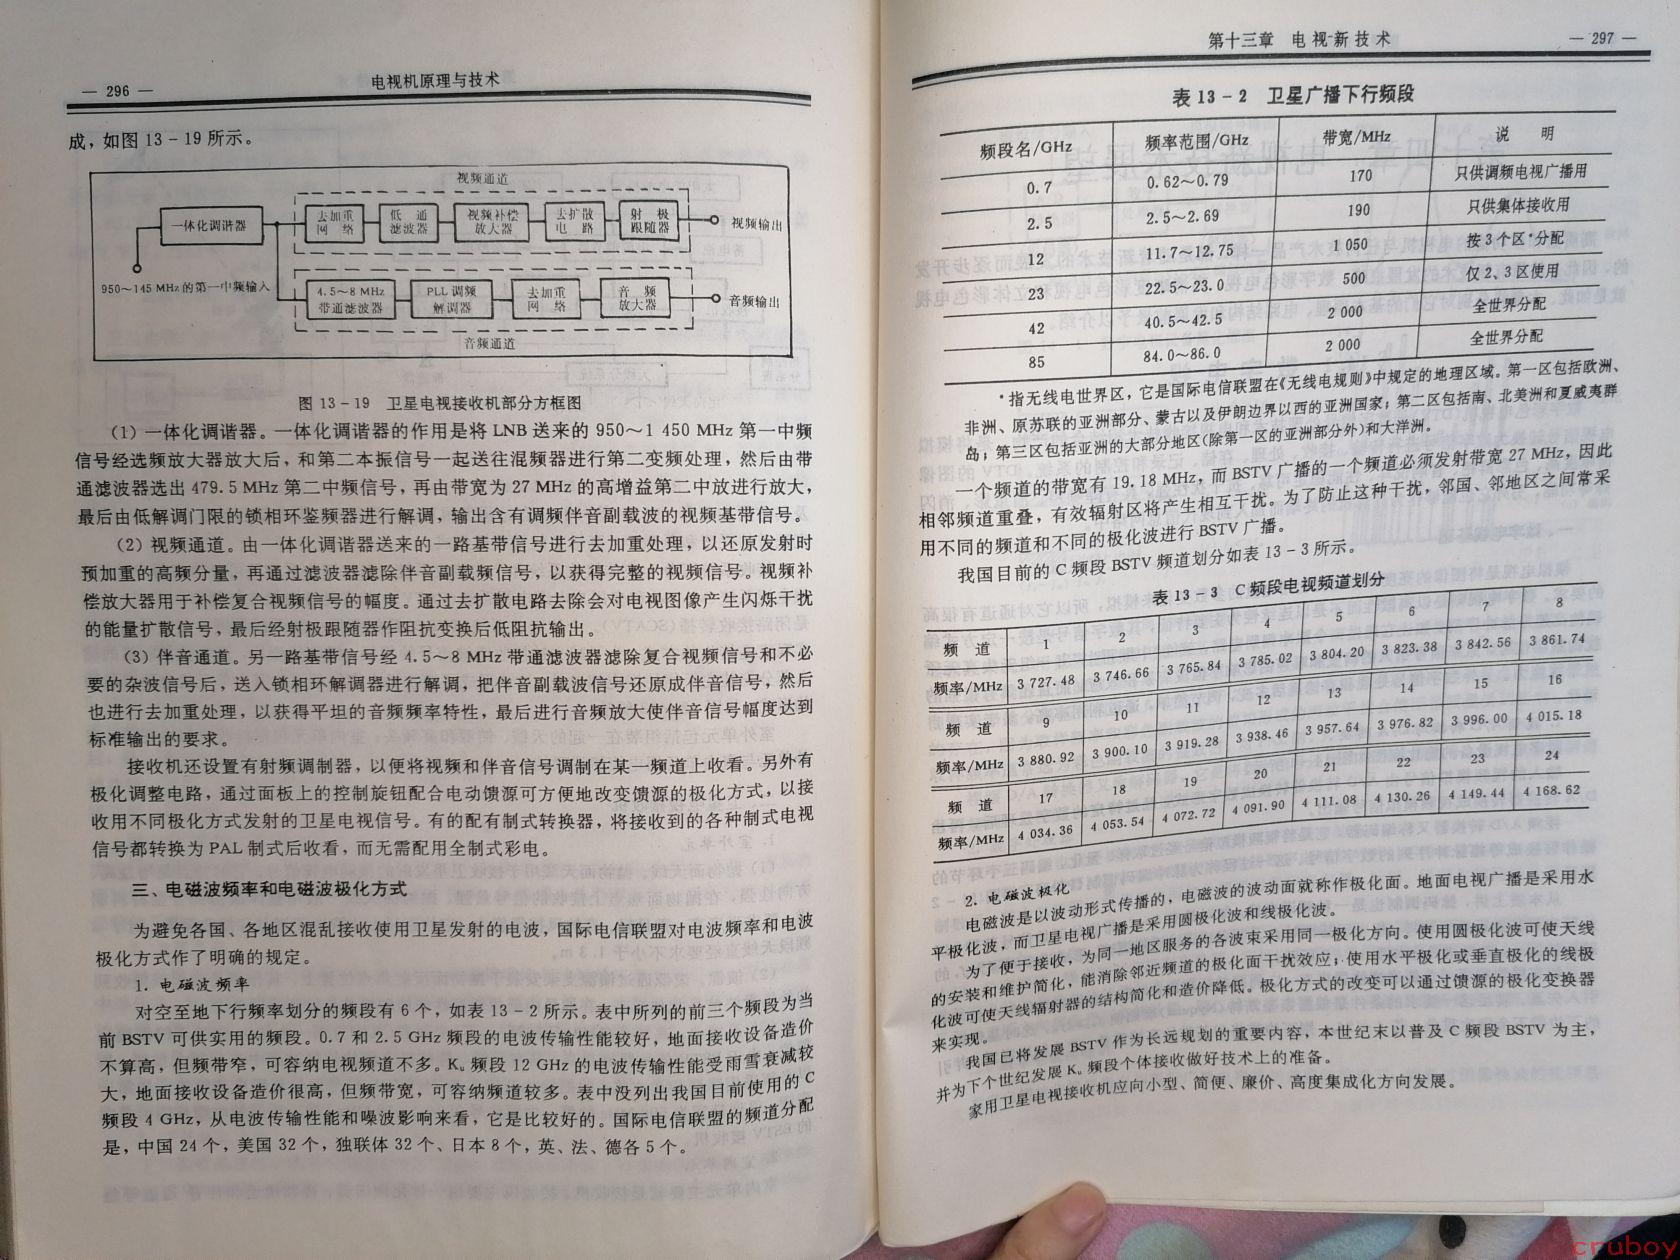 — 296 —
电视机原理与技术
成，如图 13－19 所示。
视频通道
一体化调谐器
去加重
网 络
低 通
滤波器
视频补偿
放大器
去扩散
电 路
射 极
跟随器
视频输出
950～145 MHz 的第一中频输入
4.5～8 MHz
带通滤波器
PLL 调频
解调器
去加重
网 络
音 频
放大器
音频输出
音频通道
图 13－19 卫星电视接收机部分方框图
（1）一体化调谐器。一体化调谐器的作用是将 LNB 送来的 950～1 450 MHz 第一中频
信号经选频放大器放大后，和第二本振信号一起送往混频器进行第二变频处理，然后由带
通滤波器选出 479.5 MHz 第二中频信号，再由带宽为 27 MHz 的高增益第二中放进行放大，
最后由低解调门限的锁相环鉴频器进行解调，输出含有调频伴音副载波的视频基带信号。
（2）视频通道。由一体化调谐器送来的一路基带信号进行去加重处理，以还原发射时
预加重的高频分量，再通过滤波器滤除伴音副载频信号，以获得完整的视频信号。视频补
偿放大器用于补偿复合视频信号的幅度。通过去扩散电路去除会对电视图像产生闪烁干扰
的能量扩散信号，最后经射极跟随器作阻抗变换后低阻抗输出。
（3）伴音通道。另一路基带信号经 4.5～8 MHz 带通滤波器滤除复合视频信号和不必
要的杂波信号后，送入锁相环解调器进行解调，把伴音副载波信号还原成伴音信号，然后
也进行去加重处理，以获得平坦的音频频率特性，最后进行音频放大使伴音信号幅度达到
标准输出的要求。
接收机还设置有射频调制器，以便将视频和伴音信号调制在某一频道上收看。另外有
极化调整电路，通过面板上的控制旋钮配合电动馈源可方便地改变馈源的极化方式，以接
收用不同极化方式发射的卫星电视信号。有的配有制式转换器，将接收到的各种制式电视
信号都转换为 PAL 制式后收看，而无需配用全制式彩电。
三、电磁波频率和电磁波极化方式
为避免各国、各地区混乱接收使用卫星发射的电波，国际电信联盟对电波频率和电波
极化方式作了明确的规定。
1. 电磁波频率
对空至地下行频率划分的频段有 6 个，如表 13－2 所示。表中所列的前三个频段为当
前 BSTV 可供实用的频段。0.7 和 2.5 GHz 频段的电波传输性能较好，地面接收设备造价
不算高，但频带窄，可容纳电视频道不多。Ku 频段 12 GHz 的电波传输性能受雨雪衰减较
大，地面接收设备造价很高，但频带宽，可容纳频道较多。表中没列出我国目前使用的 C
频段 4 GHz，从电波传输性能和噪波影响来看，它是比较好的。国际电信联盟的频道分配
是，中国 24 个，美国 32 个，独联体 32 个、日本 8 个，英、法、德各 5 个。
第十三章 电视新技术
— 297 —
表 13－2 卫星广播下行频段
频段名/GHz 频率范围/GHz 带宽/MHz 说 明
0.7 0.62～0.79 170 只供调频电视广播用
2.5 2.5～2.69 190 只供集体接收用
12 11.7～12.75 1 050 按 3 个区*分配
23 22.5～23.0 500 仅 2、3 区使用
42 40.5～42.5 2 000 全世界分配
85 84.0～86.0 2 000 全世界分配
*指无线电世界区，它是国际电信联盟在《无线电规则》中规定的地理区域。第一区包括欧洲、
非洲、原苏联的亚洲部分、蒙古以及伊朗边界以西的亚洲国家；第二区包括南、北美洲和夏威夷群
岛；第三区包括亚洲的大部分地区(除第一区的亚洲部分外)和大洋洲。
一个频道的带宽有 19.18 MHz，而 BSTV 广播的一个频道必须发射带宽 27 MHz，因此
相邻频道重叠，有效辐射区将产生相互干扰。为了防止这种干扰，邻国、邻地区之间常采
用不同的频道和不同的极化波进行 BSTV 广播。
我国目前的 C 频段 BSTV 频道划分如表 13－3 所示。
表 13－3 C 频段电视频道划分
频 道 1 2 3 4 5 6 7 8
频率/MHz 3 727.48 3 746.66 3 765.84 3 785.02 3 804.20 3 823.38 3 842.56 3 861.74
频 道 9 10 11 12 13 14 15 16
频率/MHz 3 880.92 3 900.10 3 919.28 3 938.46 3 957.64 3 976.82 3 996.00 4 015.18
频 道 17 18 19 20 21 22 23 24
频率/MHz 4 034.36 4 053.54 4 072.72 4 091.90 4 111.08 4 130.26 4 149.44 4 168.62
2. 电磁波极化
电磁波是以波动形式传播的，电磁波的波动面就称作极化面。地面电视广播是采用水
平极化波，而卫星电视广播是采用圆极化波和线极化波。
为了便于接收，为同一地区服务的各波束采用同一极化方向。使用圆极化波可使天线
的安装和维护简化，能消除邻近频道的极化面干扰效应；使用水平极化或垂直极化的线极
化波可使天线辐射器的结构简化和造价降低。极化方式的改变可以通过馈源的极化变换器
来实现。
我国已将发展 BSTV 作为长远规划的重要内容，本世纪末以普及 C 频段 BSTV 为主，
并为下个世纪发展 Ku 频段个体接收做好技术上的准备。
家用卫星电视接收机应向小型、简便、廉价、高度集成化方向发展。
cruboy